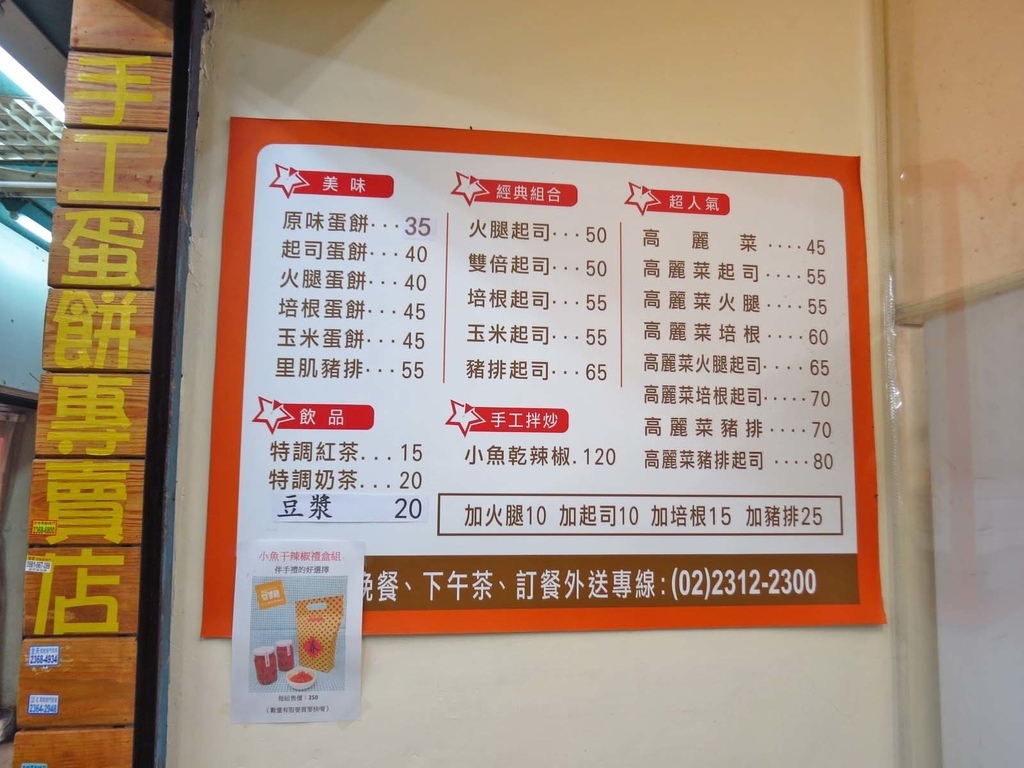 手工蛋餅專賣店
美味
原味蛋餅...35
起司蛋餅...40
火腿蛋餅...40
培根蛋餅...45
玉米蛋餅...45
里肌豬排...55
飲品
特調紅茶...15
特調奶茶...20
豆漿 20
經典組合
火腿起司...50
雙倍起司...50
培根起司...55
玉米起司...55
豬排起司...65
手工拌炒
小魚乾辣椒.120
超人氣
高麗菜....45
高麗菜起司....55
高麗菜火腿....55
高麗菜培根....60
高麗菜火腿起司....65
高麗菜培根起司.....70
高麗菜豬排....70
高麗菜豬排起司....80
加火腿10 加起司10 加培根15 加豬排25
晚餐、下午茶、訂餐外送專線:(02)2312-2300
小魚干辣椒禮盒組
伴手禮的好選擇
每組售價:350
2368-4934
2364-2948